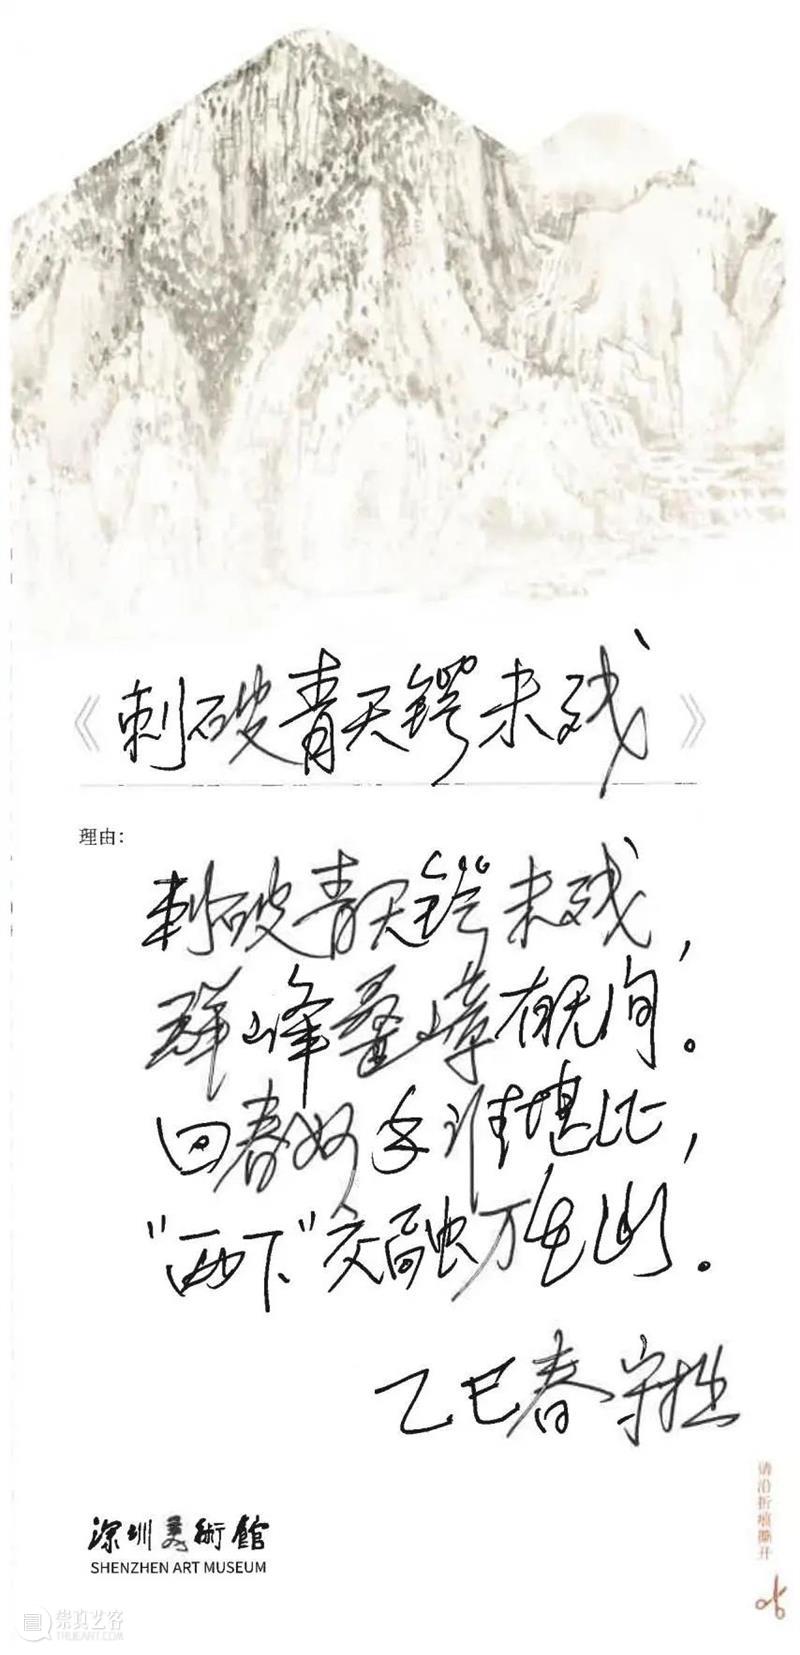 《刺破青天锷未残》
理由：
刺破青天锷未残，
群峰叠嶂有无间。
回春妙手谁堪比，
“西下”交融万生山。
乙巳春 守拙
深圳美術館
SHENZHEN ART MUSEUM
请沿折痕撕开
崇真艺客
TRUEART.COM